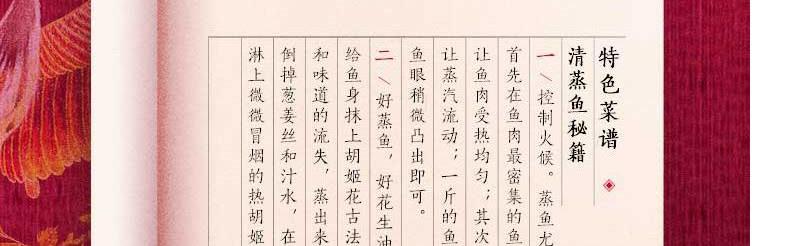 特色菜谱
清蒸鱼秘籍
一\控制火候。蒸鱼尤
首先在鱼肉最密集的鱼
让鱼肉受热均匀；其次
让蒸汽流动；一斤的鱼
鱼眼稍微凸出即可。
二\好蒸鱼，好花生油
给鱼身抹上胡姬花古法
和味道的流失，蒸出来
倒掉葱姜丝和汁水，在
淋上微微冒烟的热胡姬